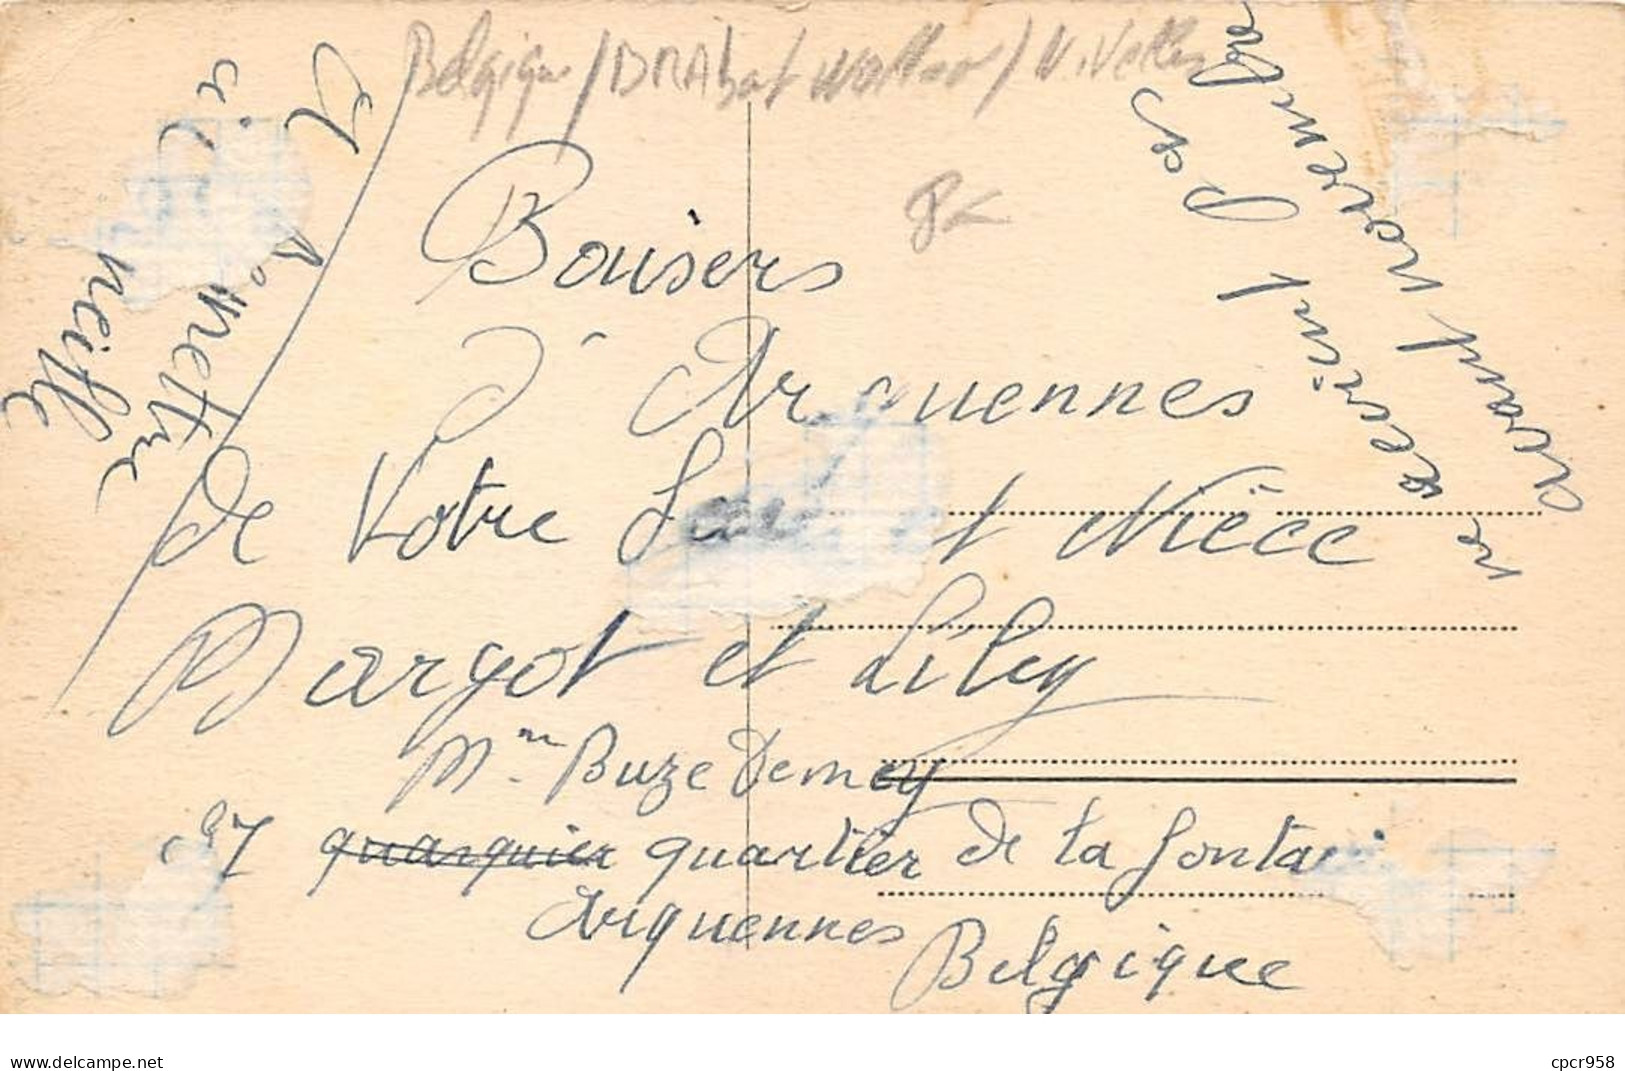 Belgique / BRAbant wallon / Nivelles
8€
Baisers
d'Arquennes
de Votre et Nièce
Margot et Lily
Mme Buze Demey
97 quarquier quartier de la fontai
Arquennes
Belgique
A Linettre
neille
ne revient Pas
avant novembre
www.delcampe.net
cpcr958